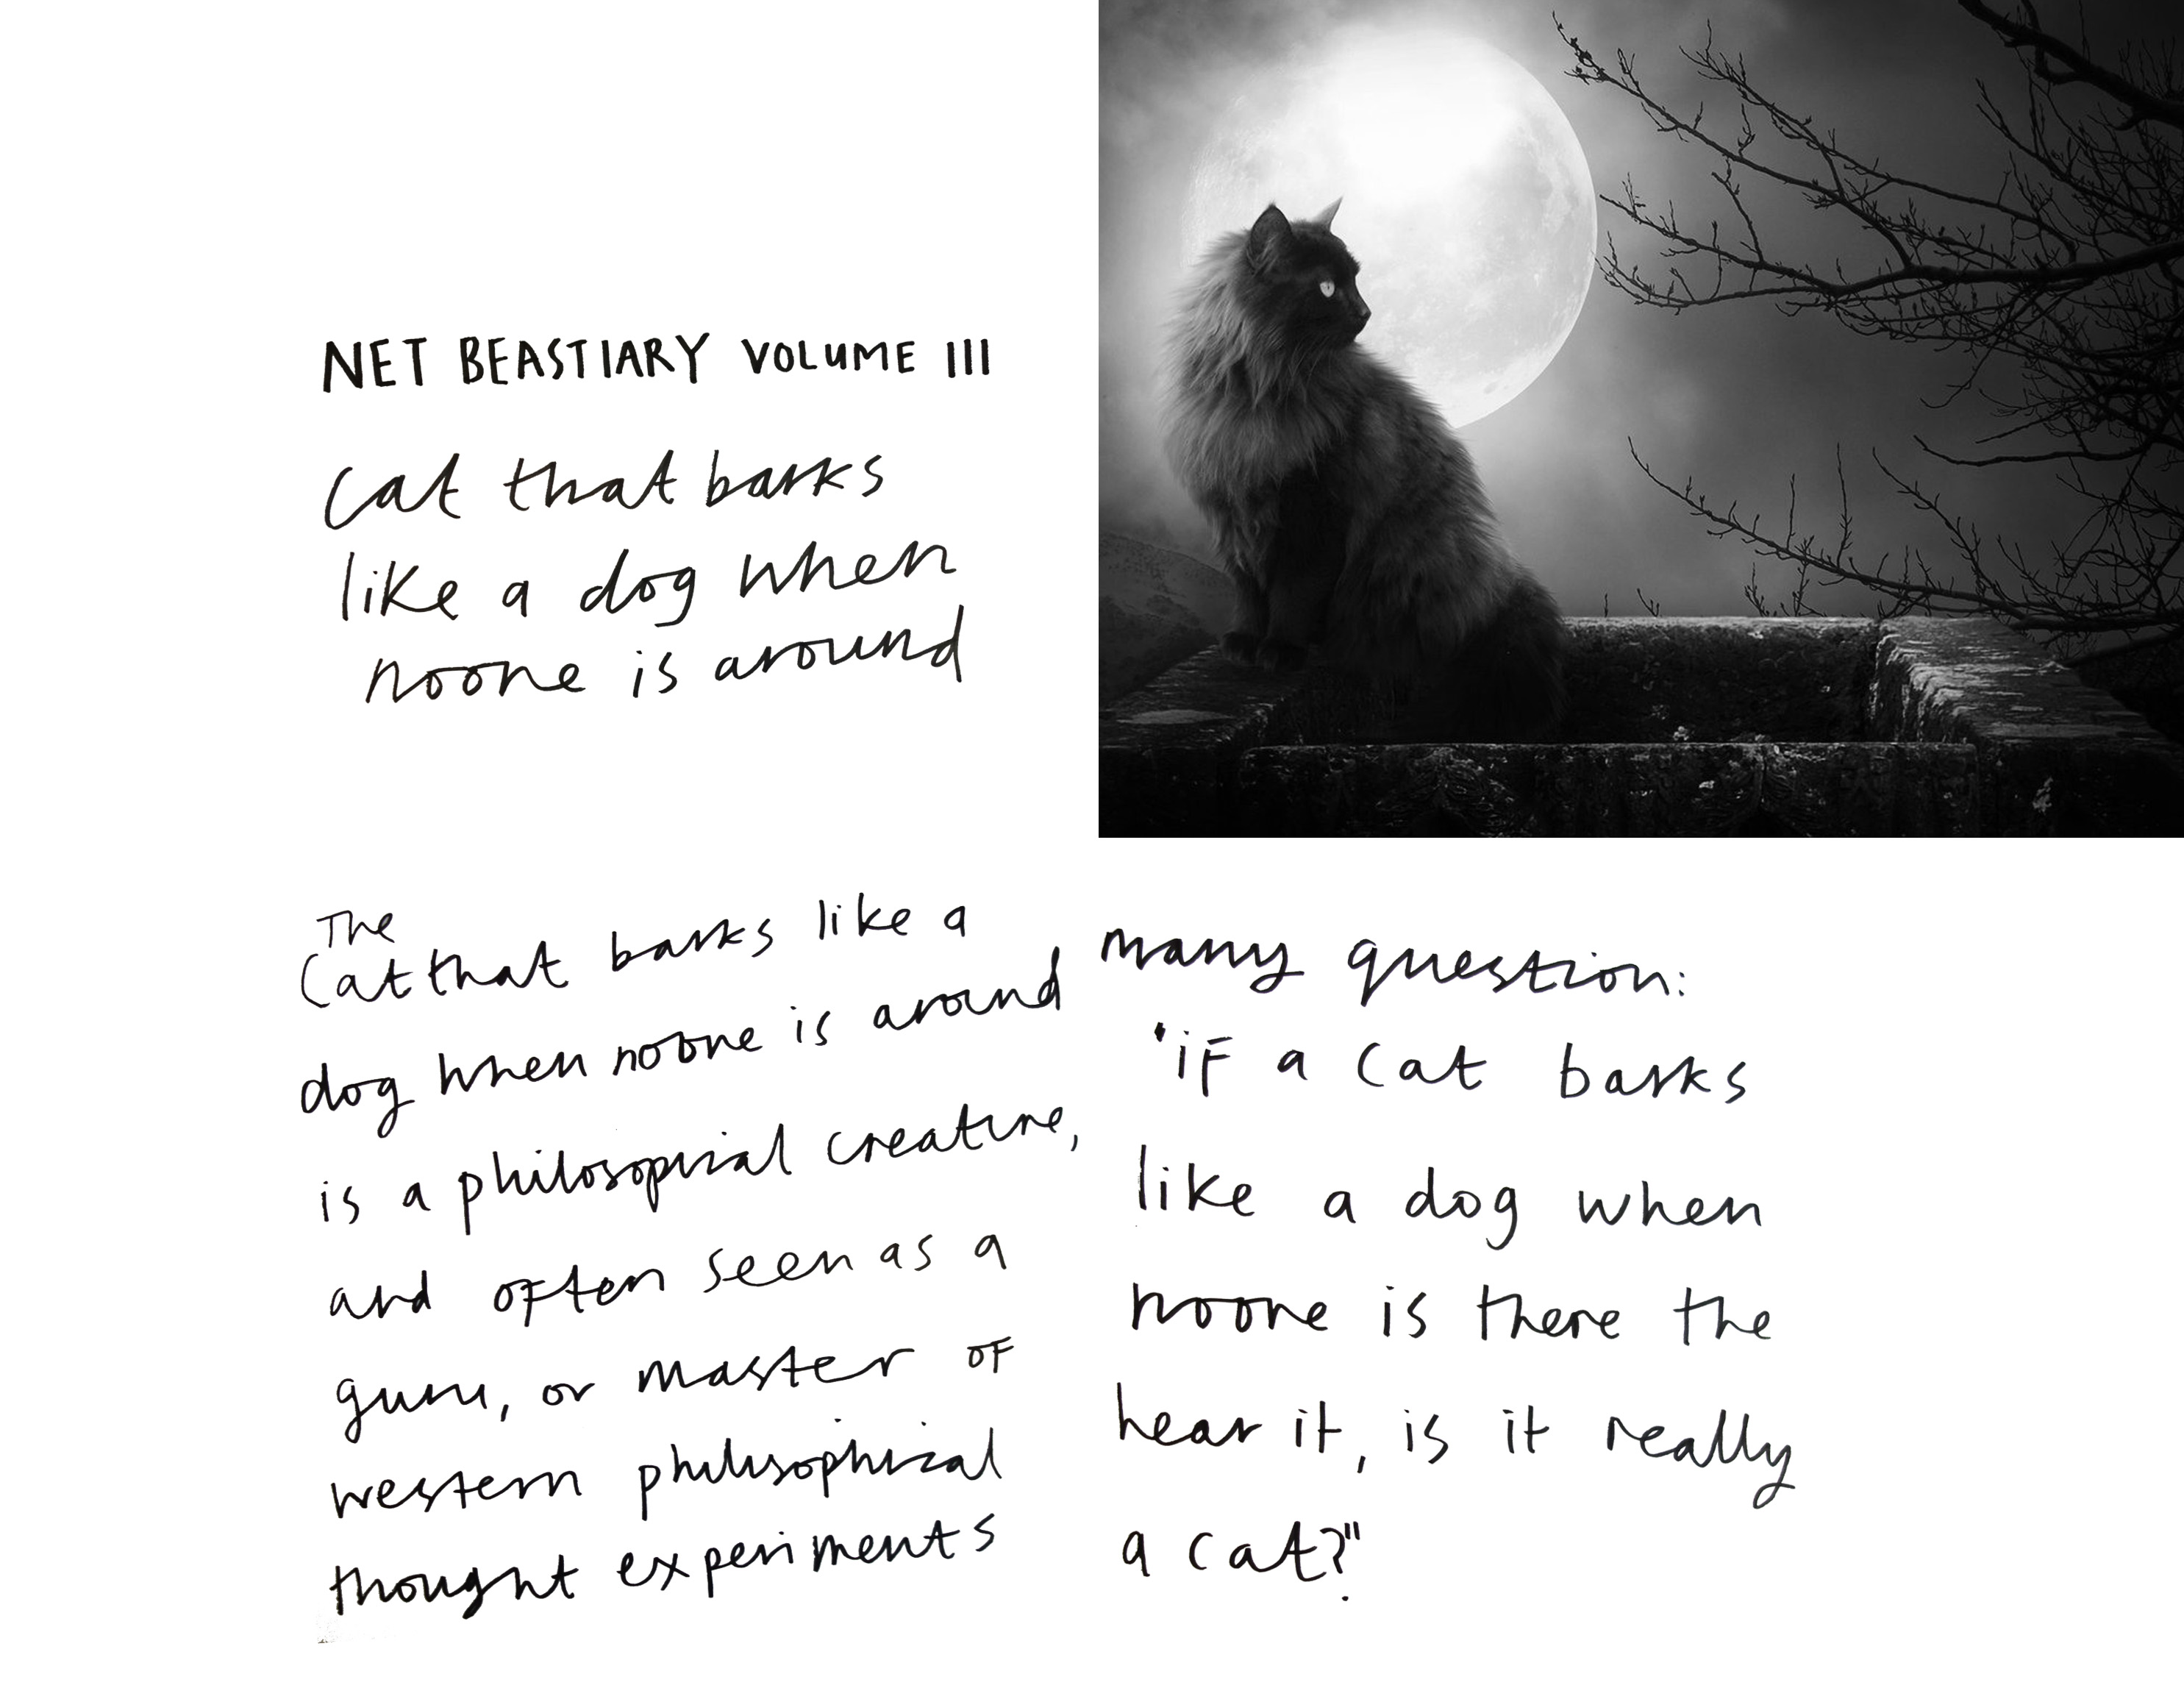 NET BEASTIARY VOLUME III
Cat that barks
like a dog when
noone is around
The
Cat that barks like a
dog when noone is around
is a philosophial creature,
and often seen as a
guru, or master of
western philisophical
thought experiments
many question:
"if a cat barks
like a dog when
noone is there the
hear it, is it really
a cat?"